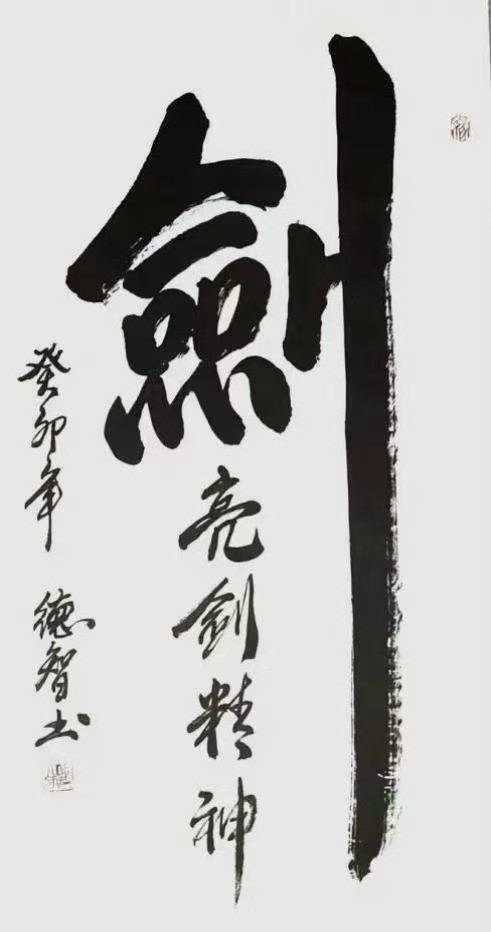 劍
亮剑精神
癸卯年 德智书